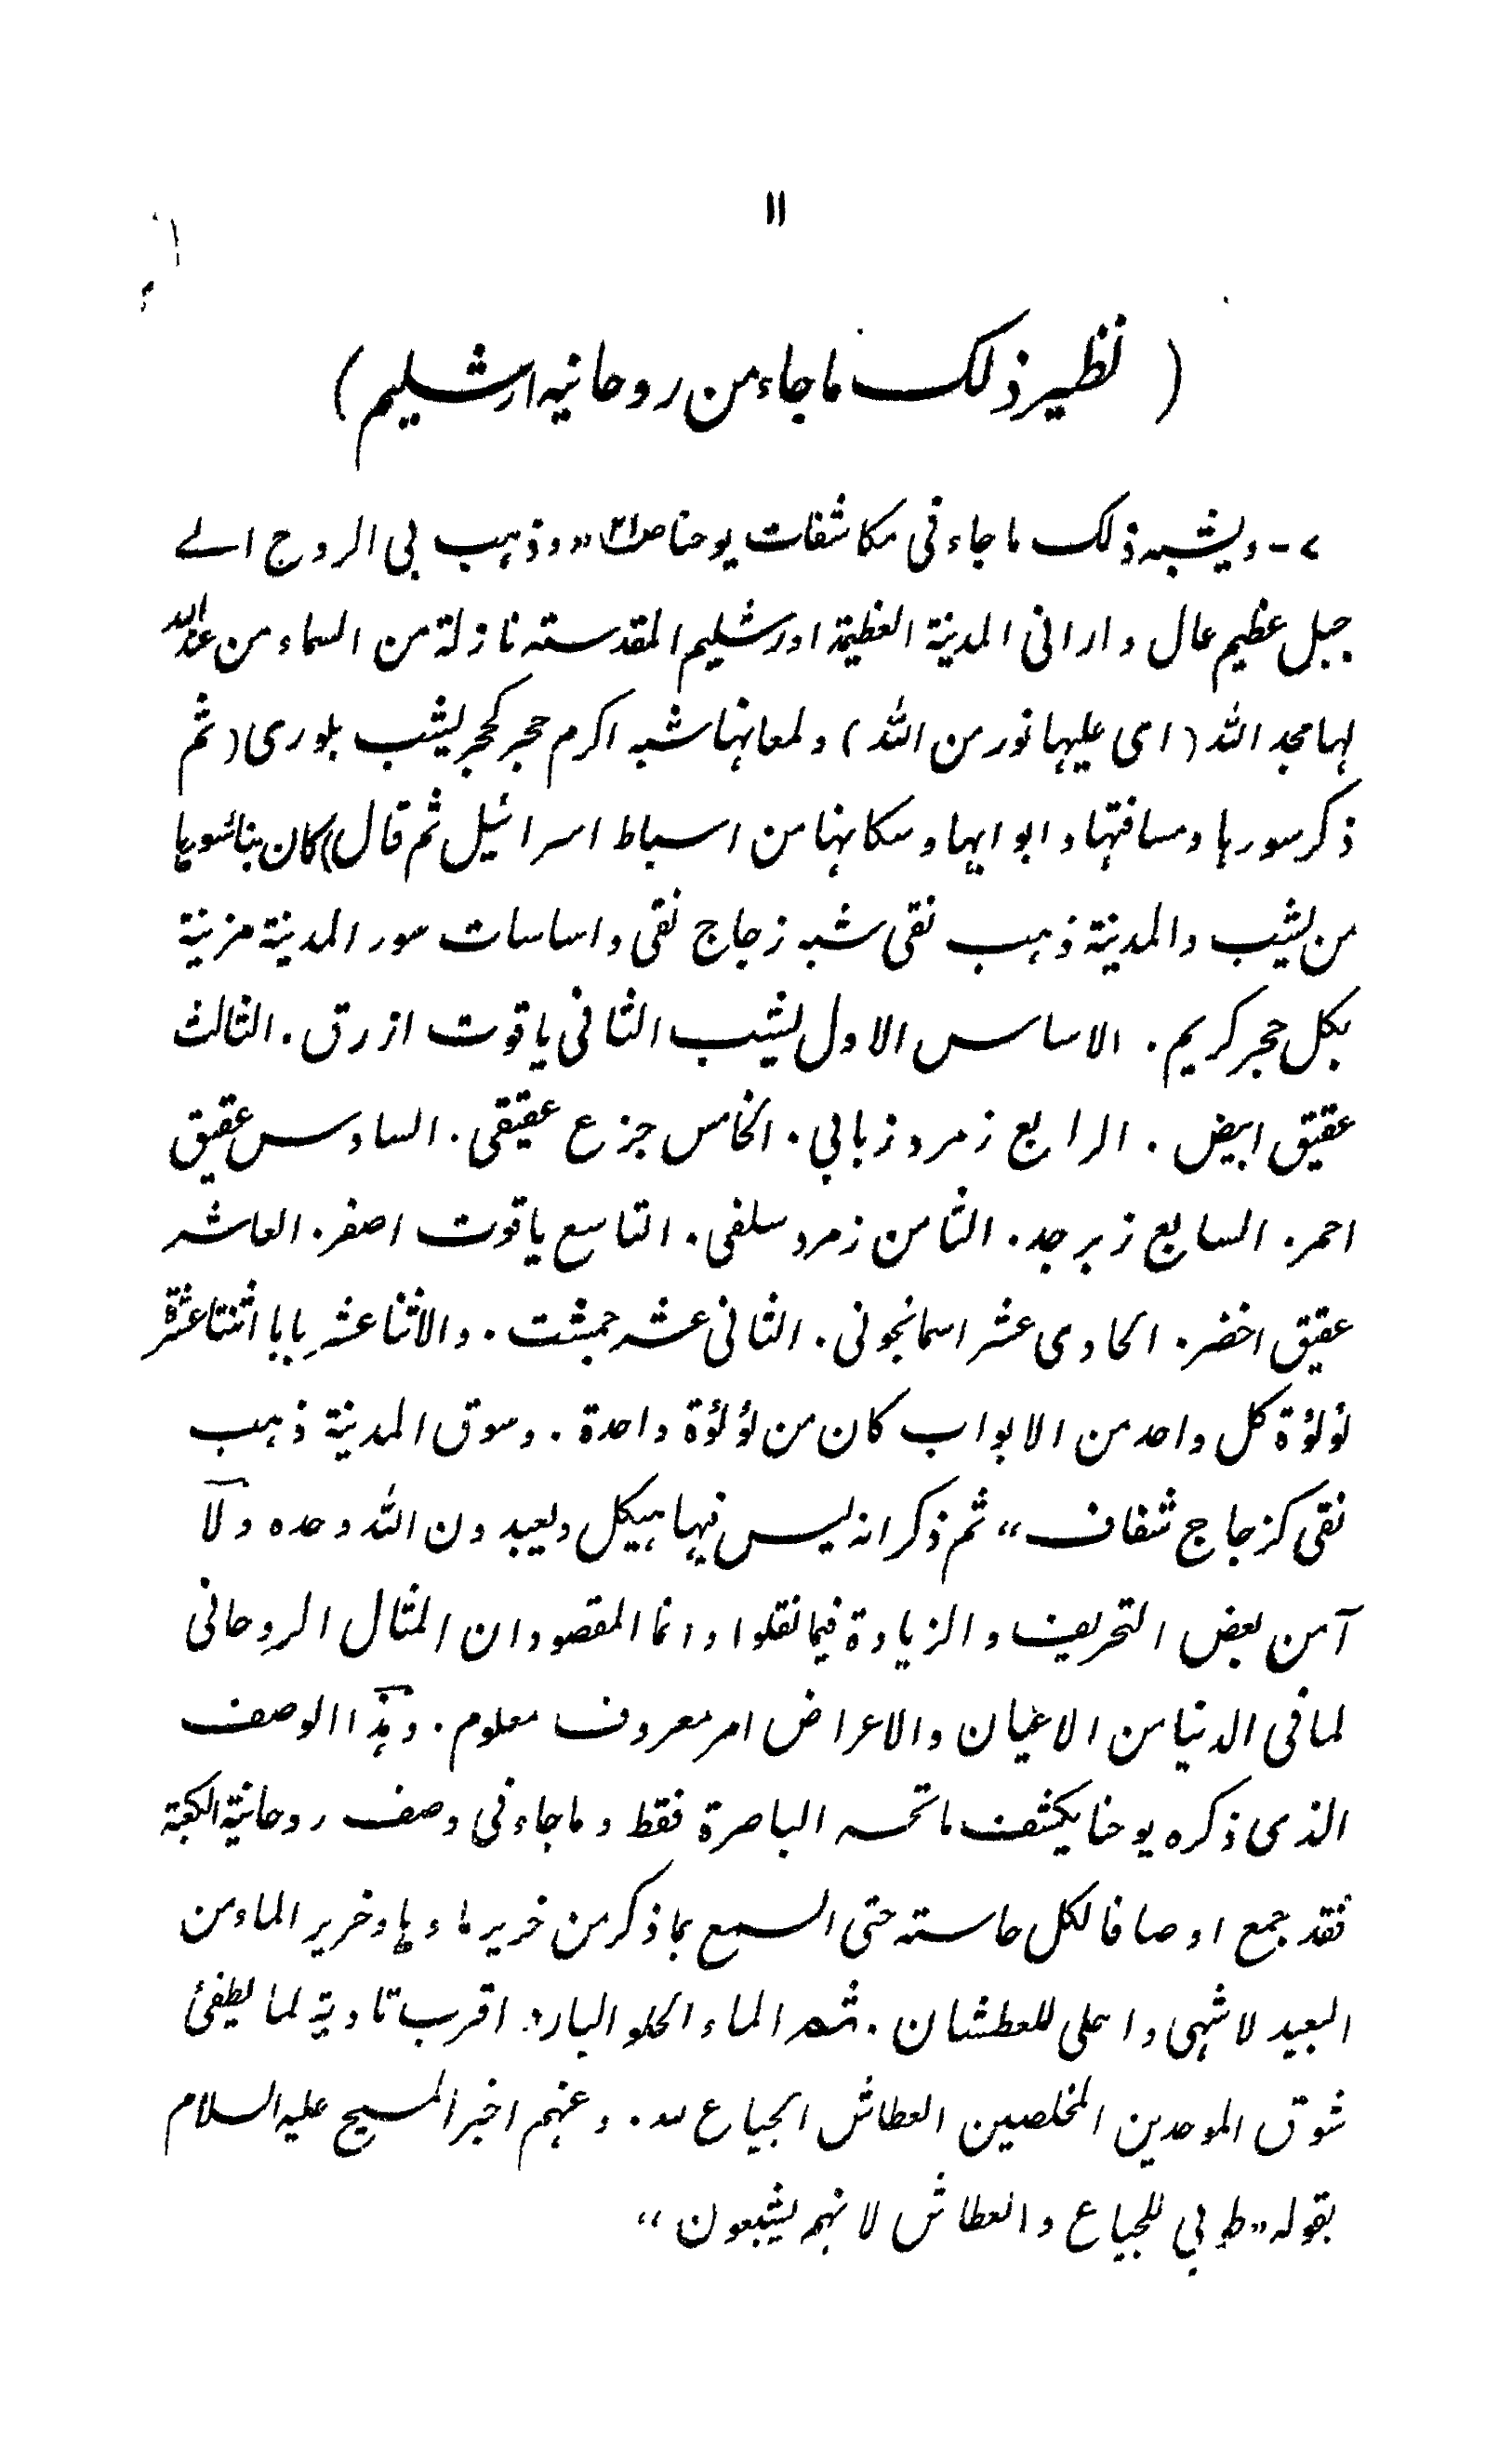 ١١
( نظیر ذلک ما جاء من روحانیه ارشلیم )
٧ - ویشبه ذلک ما جاء فی مکاشفات یوحنا ص٢١ “وذهب بی الروح الے
جبل عظیم عال وارانی المدینة العظیمة اورشلیم المقدسته نازلة من السماء من عند الله
لها مجد الله (ای علیها نور من الله) ولمعانها شبه اکرم حجر کحجر یشب بلوری (ثم
ذکر سورها ومسافتها وابوابها وسکانها من اسباط اسرائیل ثم قال) کان بناء سورها
من یشب والمدینة ذهب نقی شبه زجاج نقی واساسات سور المدینة مزینة
بکل حجر کریم. الاساس الاول یشب الثانی یاقوت ازرق. الثالث
عقیق ابیض. الرابع زمرد ذبابی. الخامس جزع عقیقی. السادس عقیق
احمر. السابع زبرجد. الثامن زمرد سلفی. التاسع یاقوت اصفر. العاشر
عقیق اخضر. الحادی عشر اسمانجونی. الثانی عشر جمشت. والاثنا عشر بابا اثنتا عشرة
لؤلؤة کل واحد من الابواب کان من لؤلؤة واحدة. وسوق المدینة ذهب
نقی کزجاج شفاف” ثم ذکر انه لیس فیها هیکل ویعبدون الله وحده ولا
آمن بعض التحریف والزیادة فیما نقلوا وانما المقصود ان المثال الروحانی
لما فی الدنیا من الاعیان والاعراض امر معروف معلوم. وهذا الوصف
الذی ذکره یوحنا یکشف ما تحسه الباصرة فقط وما جاء فی وصف روحانیة الکعبة
فقد جمع اوصافا لکل حاسته حتی السمع بما ذکر من خریر ماء وها وخریر الماء من
البعید لاشهی واحلی للعطشان. ثم الماء الحلو البارد اقرب تادیة لما یطفئ
شوق الموحدین المخلصین العطاش الجیاع لله. وعنهم اخبر المسیح علیه السلام
بقوله “طوبی للجیاع والعطاش لانهم یشبعون”